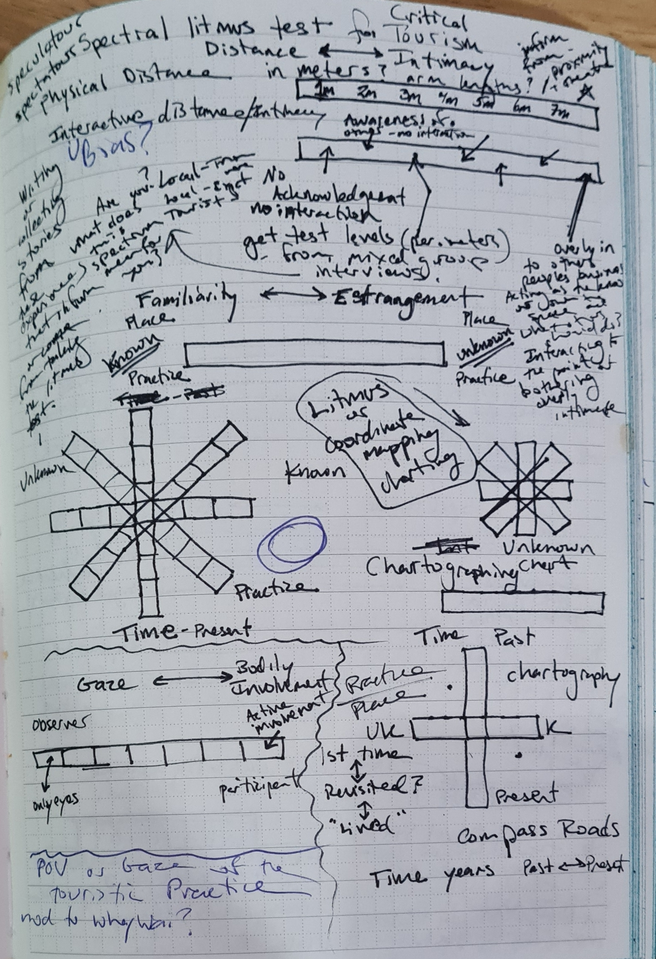 speculatous
Spectral litmus test for Critical Tourism
spectatous
Distance ↔ Intimacy
Physical Distance in meters? arm lengths?
inform from proximity
1m 2m 3m 4m 5m 6m 7m
Interactive distance/Intimacy
Awareness of others - no interaction
Bias?
No Acknowledgement
no interaction
?
Are you Local-Tour
what does this spectrum
Tourist
mean for you?
Writing or collecting stories from these experiences that inform
or
from
the litmus test!
get test levels (per. meters)
from mixed group interviews
overly in
to others
peoples business
Acting as
Interacting to
the point of
bothering
overly
intimate
Familiarity ↔ Estrangement
Place
Known
Practice
Place
unknown
Practice
Time - Past
Litmus
as
coordinate
mapping
charting
Unknown
Known
Practice
Time - Present
Unknown
Chartographing Chart
Time Past
chartography
Practice
Place
UK
K
Present
Compass Roads
Time years Past ↔ Present
Gaze ↔ Bodily Involvement
observer
Active involvement
only eyes
participant
1st time
Revisited?
"Lived"
POV or Gaze of the
touristic Practice